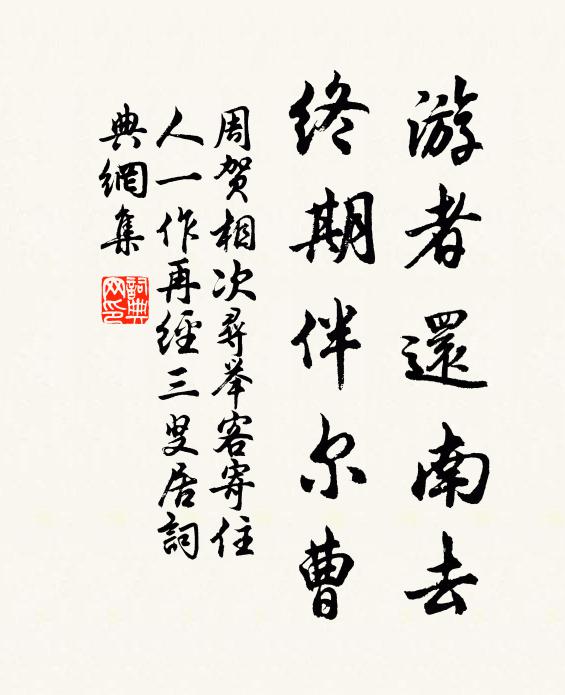 游者還南去
終期伴尔曹
周贺相次尋举客寄住
人一作再經三叟居詞
典網集
詞典
网印